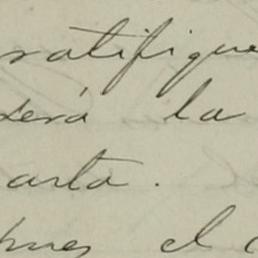 ratifique
será la
arta.
pues el